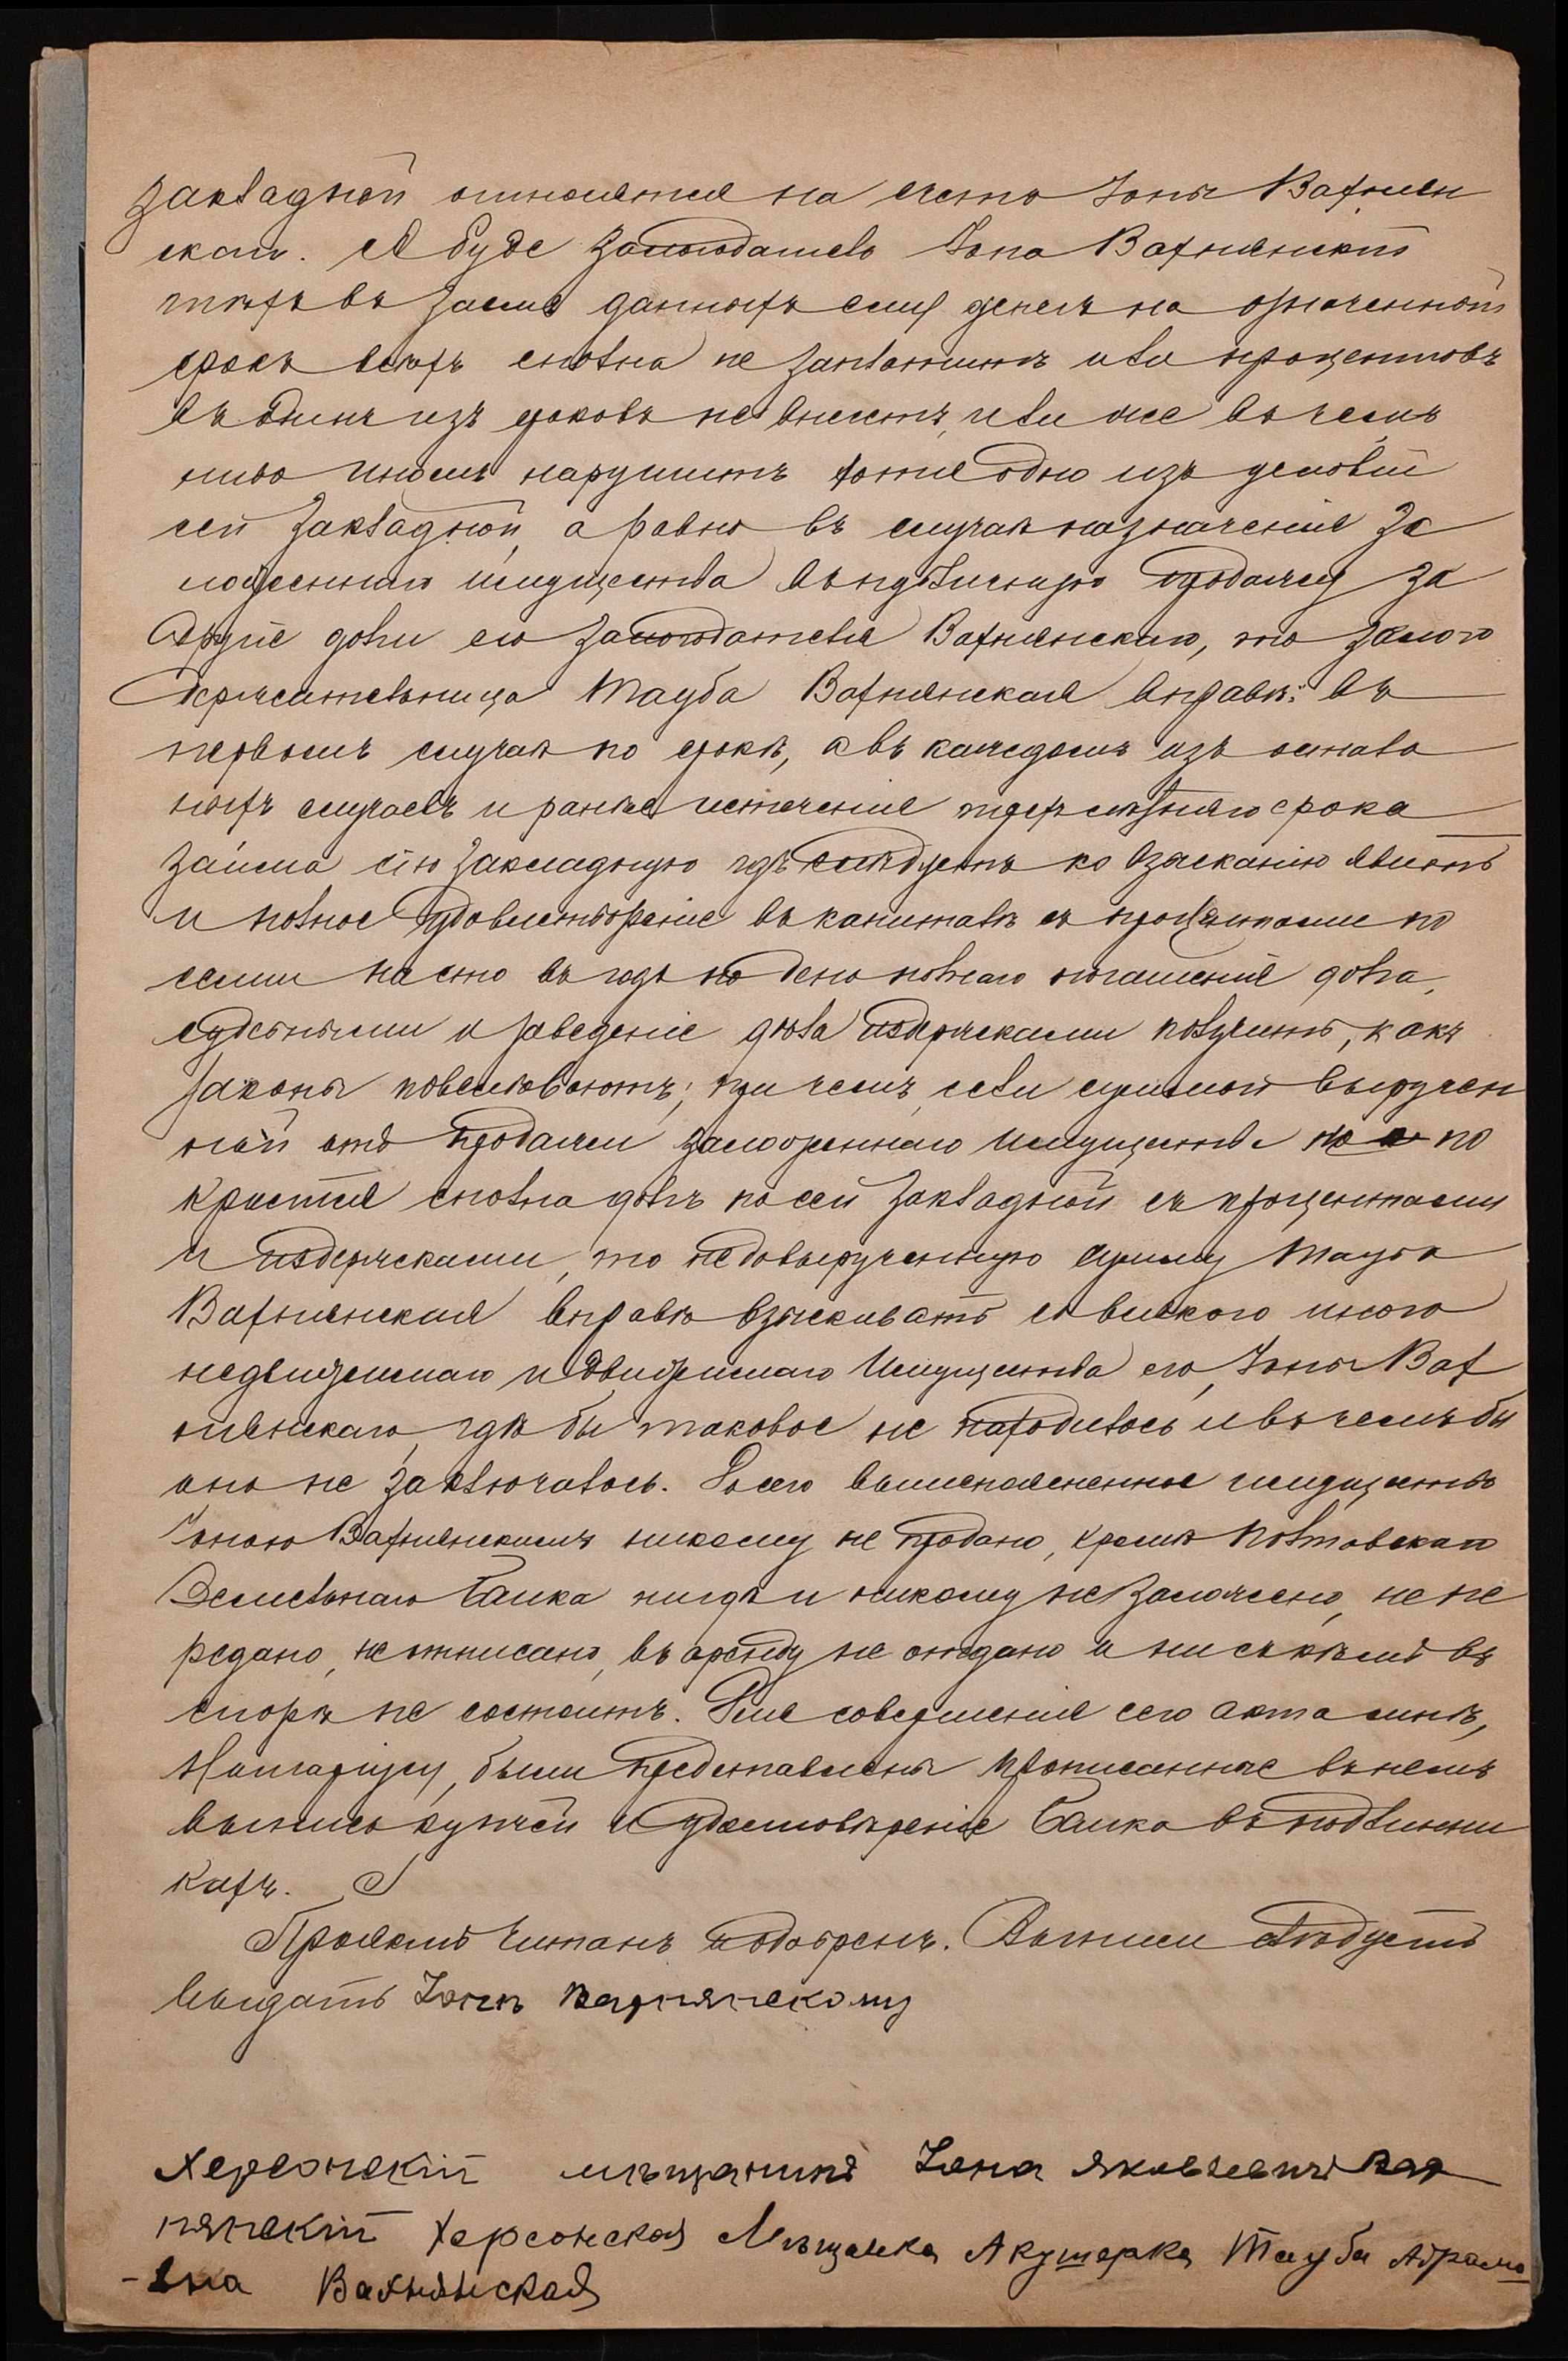 закладной относятся на счетъ Іоны Вахнян
скаго. А буде залогодатель Іона Вахнянскій
тѣхъ въ заемъ данныхъ ему денегъ на означенный
срокъ всѣхъ сполна не заплатитъ или процентовъ
въ одинъ изъ сроковъ не внесетъ, или же въ чемъ
либо иномъ нарушитъ хотя одно изъ условій
сей закладной, а равно въ случаѣ назначенія за
ложеннаго имущества въ публичную продажу за
другіе долги его залогодателя Вахнянскаго, то залого
держательница Тауба Вахнянская вправѣ: въ
первомъ случаѣ по срокѣ, а въ каждомъ изъ осталь
ныхъ случаевъ и ранѣе истеченія трехлѣтняго срока
займа сію закладную гдѣ слѣдуетъ ко взысканію явить
и полное удовлетвореніе въ капиталѣ съ процентами по
семи на сто въ годъ по день полнаго погашенія долга,
судебными и за веденіе дѣла издержками получить, какъ
законы повелѣваютъ; при чемъ, если суммой выручен
ной отъ продажи заложеннаго имущества не по
кроется сполна долгъ по сей закладной съ процентами
и издержками, то недовырученную сумму Тауба
Вахнянская вправѣ взыскивать съ всякого иного
недвижимаго и движимаго имущества его, Іоны Вах
нянскаго, гдѣ бы таковое не находилось и въ чемъ бы
оно не заключалось. До сего вышепоясненное имущество
Іоною Вахнянскимъ никому не продано, кромѣ Полтавскаго
Земельнаго Банка нигдѣ и никому не заложено, не пе
редано, не отписано, въ аренду не отдано и ни съ кѣмъ въ
спорѣ не состоитъ. Для совершенія сего акта мнѣ,
Нотаріусу, были представлены прописанные въ немъ
выпись купчей и удостовѣреніе Банка въ подлинни
кахъ.
Проектъ читанъ и одобренъ. Выписи слѣдуетъ
выдать Іонѣ Вахнянскому
Херсонскій мѣщанинъ Іона Яковлевичъ Вах
нянскій Херсонская Мѣщанка Акушерка Тауба Абрамо
-вна Вахнянская